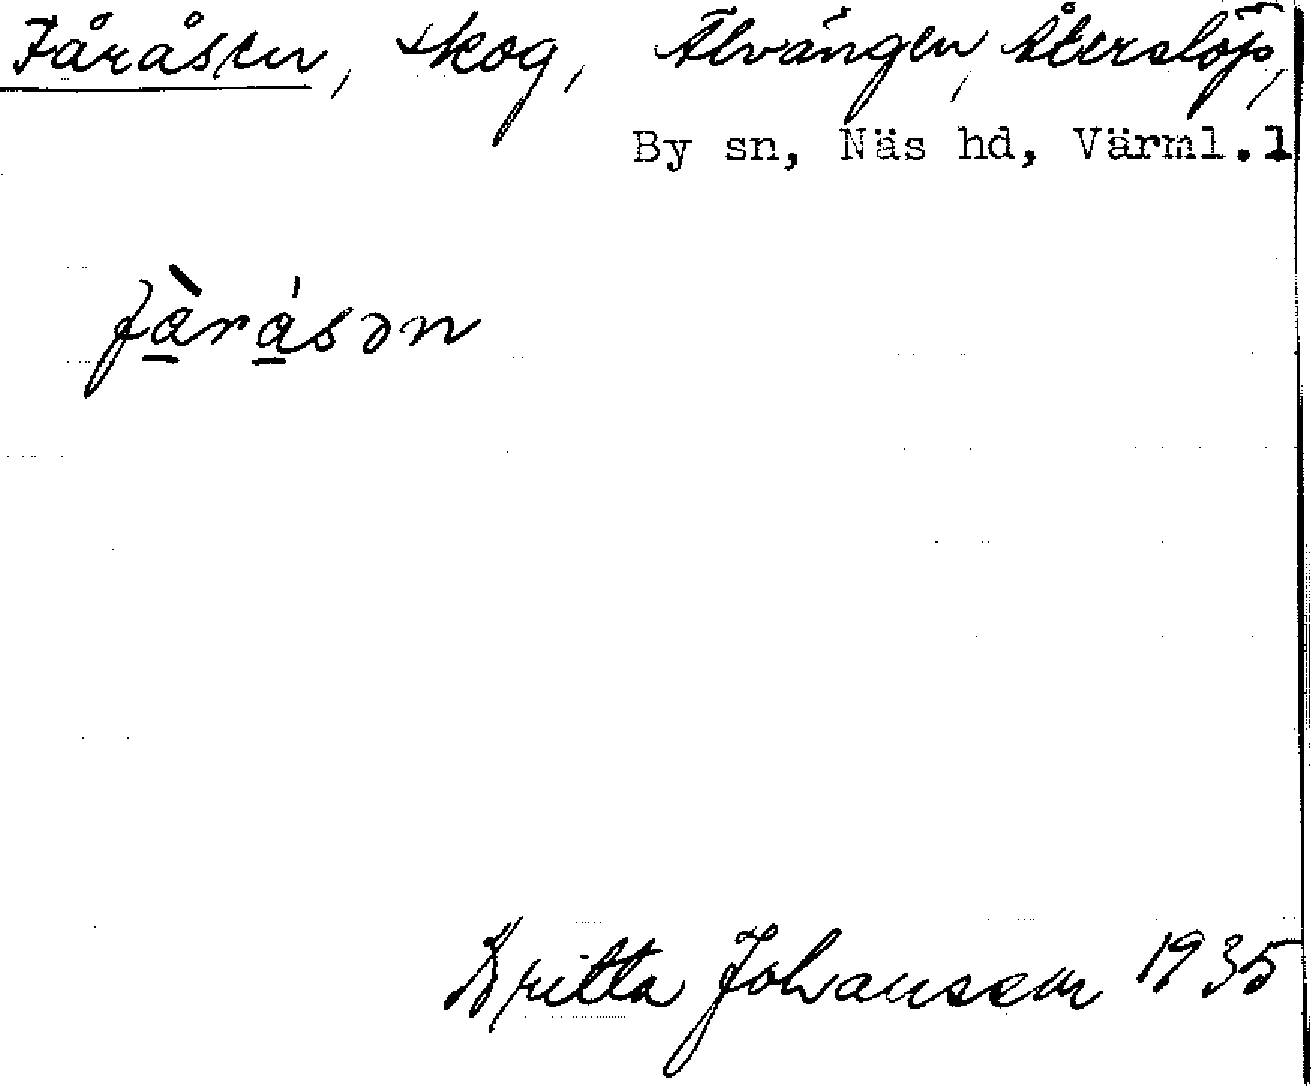 Fåråsen, skog, Älvängen, Återslöp,
By sn, Näs hd, Värml.l
fàråsən
Britta Johansson 1935